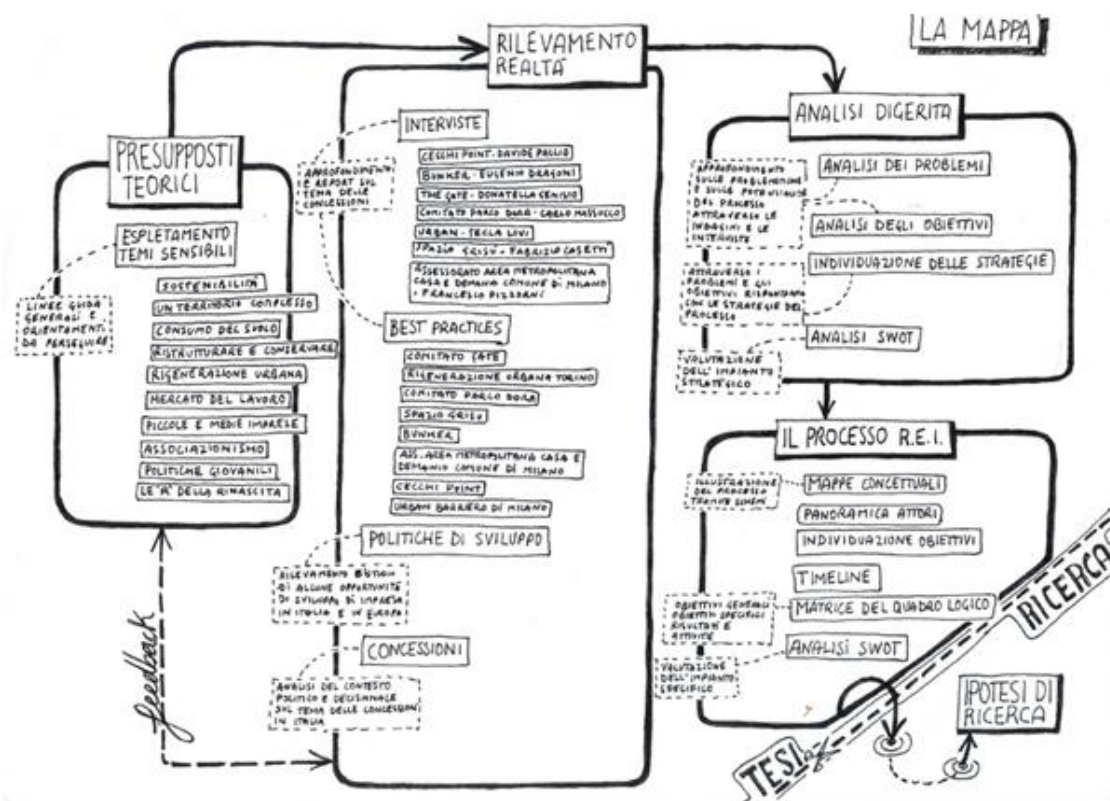 LA MAPPA
PRESUPPOSTI
TEORICI
ESPLETAMENTO
TEMI SENSIBILI
LINEE GUIDA
GENERALI E
ORIENTAMENTI
DA PERSEGUIRE
SOSTENIBILITÀ
UN TERRITORIO COMPLESSO
CONSUMO DEL SUOLO
RISTRUTTURARE E CONSERVARE
RIGENERAZIONE URBANA
MERCATO DEL LAVORO
PICCOLE E MEDIE IMPRESE
ASSOCIAZIONISMO
POLITICHE GIOVANILI
LE "R" DELLA RINASCITA
feedback
RILEVAMENTO
REALTÀ
INTERVISTE
APPROFONDIMENTO
E REPORT SUL
TEMA DELLE
CONCESSIONI
CECCHI POINT - DAVIDE
BUNKER - EUGENIO DRAGONI
THE GATE - DONATELLA
COMITATO PARCO DORA - CARLO
URBAN - TECLA LIVI
SPAZIO GRISÙ - FABRIZIO CASETTI
ASSESSORATO AREA METROPOLITANA
CASA E DEMANIO COMUNE DI MILANO
- FRANCESCO
BEST PRACTICES
COMITATO GATE
RIGENERAZIONE URBANA TORINO
COMITATO PARCO DORA
SPAZIO GRISÙ
BUNKER
ASS. AREA METROPOLITANA CASA E
DEMANIO COMUNE DI MILANO
CECCHI POINT
URBAN BARRIERA DI MILANO
POLITICHE DI SVILUPPO
RILEVAMENTO
DI ALCUNE OPPORTUNITÀ
DI SVILUPPO DI IMPRESA
IN ITALIA E IN EUROPA
CONCESSIONI
ANALISI DEL CONTESTO
POLITICO E DECISIONALE
SUL TEMA DELLE CONCESSIONI
IN ITALIA
ANALISI DIGERITA
APPROFONDIMENTO
SULLE PROBLEMATICHE
E SULLE POTENZIALITÀ
DEL PROCESSO
ATTRAVERSO LE
INDAGINI E LE
INTERVISTE
ANALISI DEI PROBLEMI
ANALISI DEGLI OBIETTIVI
INDIVIDUAZIONE DELLE STRATEGIE
ATTRAVERSO I
PROBLEMI E GLI
OBIETTIVI RISPONDIAMO
CON LE STRATEGIE DEL
PROCESSO
ANALISI SWOT
VALUTAZIONE
DELL'IMPIANTO
STRATEGICO
IL PROCESSO R.E.I.
ILLUSTRAZIONE
DEL PROCESSO
TRAMITE SCHEMI
MAPPE CONCETTUALI
PANORAMICA ATTORI
INDIVIDUAZIONE OBIETTIVI
TIMELINE
OBIETTIVI GENERALI
OBIETTIVI SPECIFICI
RISULTATI E
ATTIVITÀ
MATRICE DEL QUADRO LOGICO
ANALISI SWOT
VALUTAZIONE
DELL'IMPIANTO
SPECIFICO
TESI
RICERCA
IPOTESI DI
RICERCA